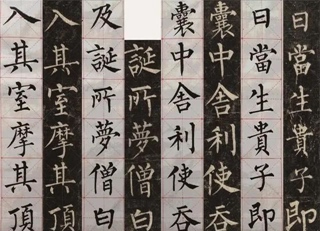 日當生貴子即
日當生貴子即
囊中舍利使吞
囊中舍利使吞
誕所夢僧白
及誕所夢僧白
入其室摩其頂
入其室摩其頂